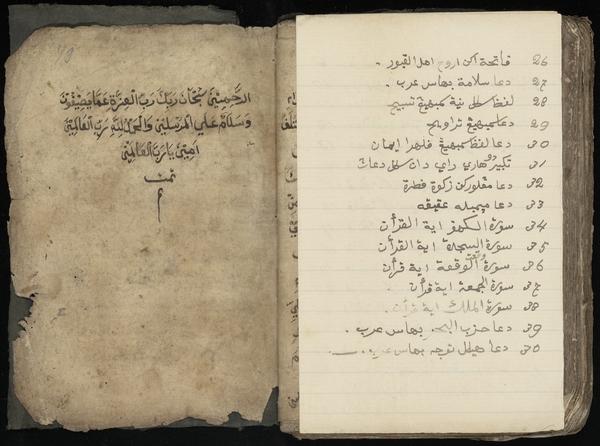 19
الرحمين سبحان ربك رب العزة عما يصفون
وسلام على المرسلين والحمد لله رب العالمين
امين يا رب العالمين
تمت
م
26 فاتحة اكن اروح اهل القبور .
27 دعا سلامة بهاس عرب .
28 لفظ سڬل نية سمبهيڠ تسبيح
29 دعا سمبهيڠ تراويح
30 دعا لفظ سمبهيڠ فلهرا ايمان
31 تكبير دوهاري راي دان سڬل دعات
32 دعا مڠلوركن زكوة فطرة
33 دعا ميمبله عقيقه
34 سورة الكهف اية القرأن
35 سورة السجدة اية القرأن
36 سورة الوقعة اية قرأن
37 سورة الجمعة اية قرأن .
38 سورة الملك اية قرأن .
39 دعا حزب البحر بهاس عرب .
30 دعا هيكل توجه بهاس عرب .